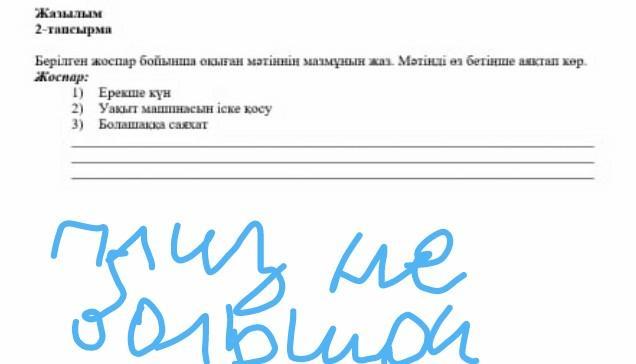 Жазылым
2-тапсырма
Берілген жоспар бойынша оқыған мәтіннің мазмұнын жаз. Мәтінді өз бетіңше аяқтап көр.
Жоспар:
1) Ерекше күн
2) Уақыт машинасын іске қосу
3) Болашаққа саяхат
не